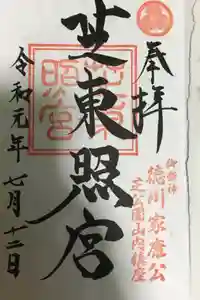 奉拝
御祭神
徳川家康公
芝公園山内鎮座
芝東照宮
芝東照宮
令和元年七月十二日